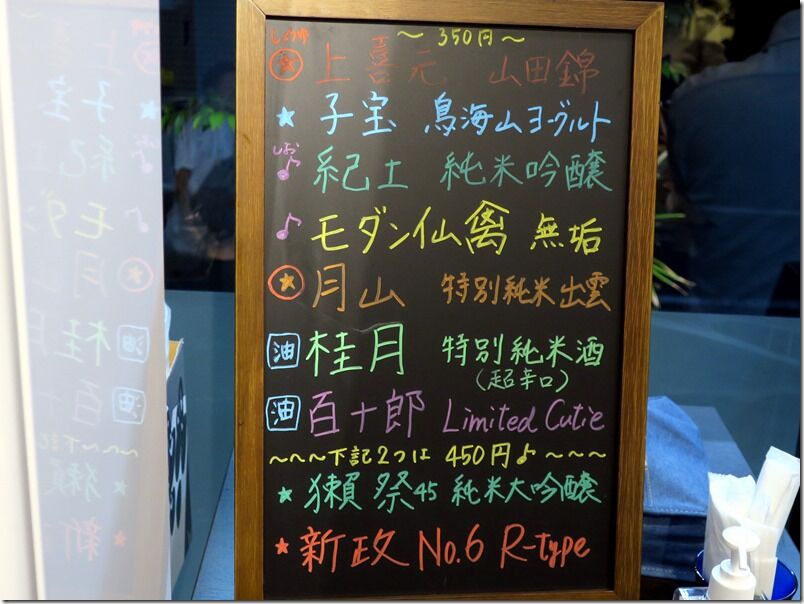 ～350円～
しょうゆ
上喜元 山田錦
★ 子宝 鳥海山ヨーグルト
しお
♪ 紀土 純米吟醸
♪ モダン仙禽 無垢
★ 月山 特別純米出雲
油 桂月 特別純米酒
(超辛口)
油 百十郎 Limited Cutie
～～～下記2つは 450円♪～～～
★ 獺祭45 純米大吟醸
★ 新政 No.6 R-type